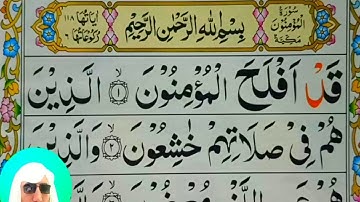 سُوْرَةُ الْمُؤْمِنُوْنَ مَكِّيَّةٌ
بِسْمِ اللّٰهِ الرَّحْمٰنِ الرَّحِيْمِ
اٰيَاتُهَا ١١٨ رُكُوْعَاتُهَا ٦
قَدْ اَفْلَحَ الْمُؤْمِنُوْنَ ۙ۝١ الَّذِيْنَ
هُمْ فِيْ صَلَاتِهِمْ خٰشِعُوْنَ ۙ۝٢ وَالَّذِيْنَ